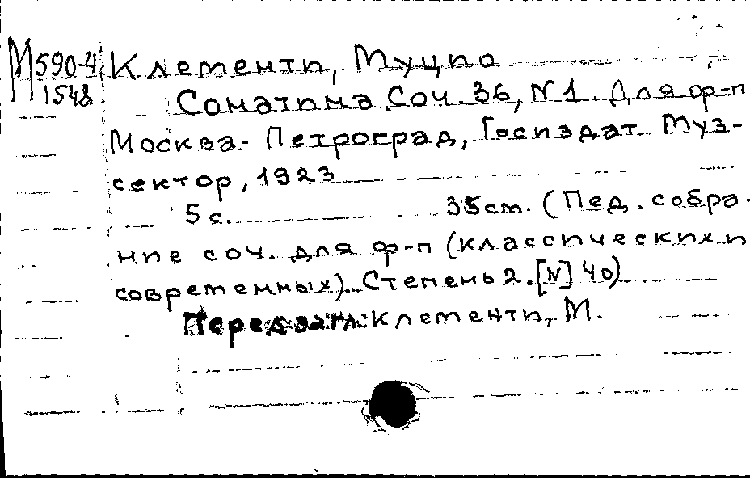 М590-4 Клементи, Муцио
1548
Сонатина Соч. 36, N1. Для ф-п
Москва-Петроград, Госиздат. Муз-
сектор, 1923
5 с. 35 cm. (Пед. собра-
ние соч. для ф-п (классических и
современных). Степень 2. [N] 40)
Перед загл: Клементи, М.